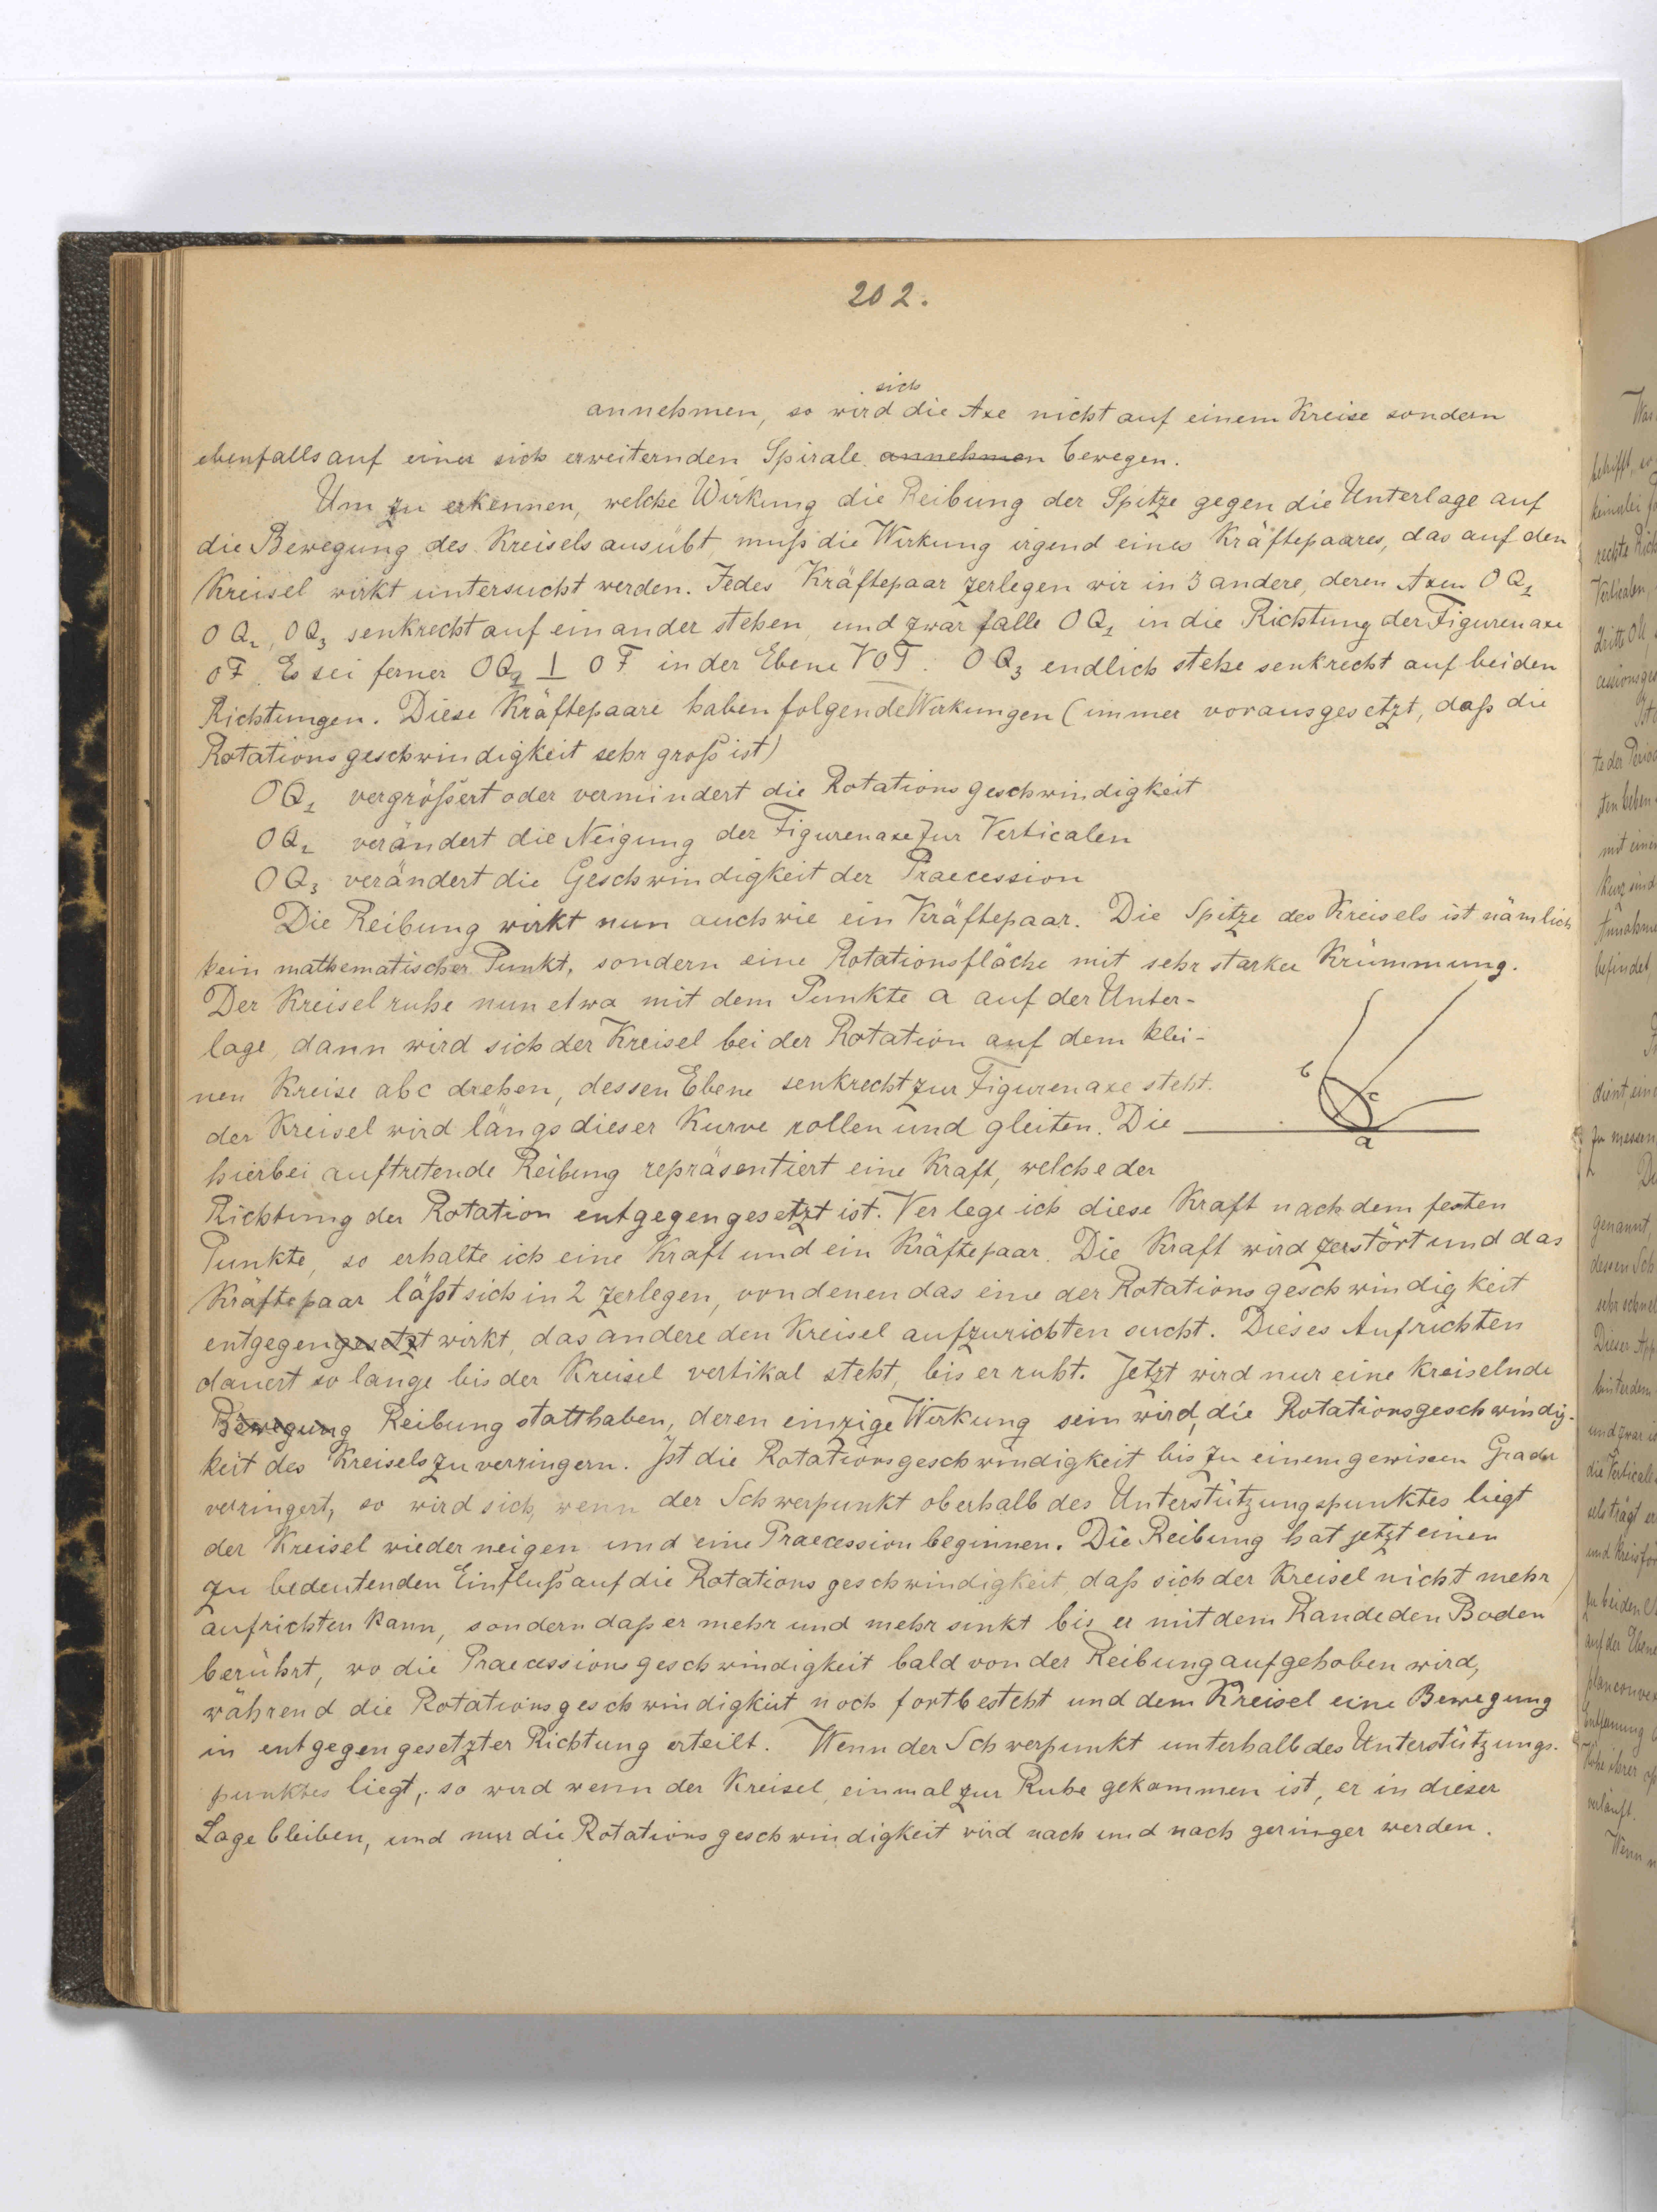 202.
sich
annehmen, so wird die Axe nicht auf einem Kreise sondern
ebenfalls auf einer sich erweiternden Spirale annehmen bewegen.
Um zu erkennen, welche Wirkung die Reibung der Spitze gegen die Unterlage auf
die Bewegung des Kreisels ausübt, muß die Wirkung irgend eines Kräftepaares, das auf den
Kreisel wirkt untersucht werden. Jedes Kräftepaar zerlegen wir in 3 andere, deren Axen OQ₁
OQ₂, OQ₃ senkrecht auf einander stehen und zwar falle OQ₁ in die Richtung der Figurenaxe
OF. Es sei ferner OQ₂ ⊥ OF in der Ebene VOF. OQ₃ endlich stehe senkrecht auf beiden
Richtungen. Diese Kräftepaare haben folgende Wirkungen (immer vorausgesetzt, daß die
Rotationsgeschwindigkeit sehr groß ist)
OQ₁ vergrößert oder vermindert die Rotationsgeschwindigkeit
OQ₂ verändert die Neigung der Figurenaxe zur Verticalen
OQ₃ verändert die Geschwindigkeit der Praecession
Die Reibung wirkt nun auch wie ein Kräftepaar. Die Spitze des Kreisels ist nämlich
kein mathematischer Punkt, sondern eine Rotationsfläche mit sehr starker Krümmung.
Der Kreisel ruhe nun etwa mit dem Punkte a auf der Unter-
lage, dann wird sich der Kreisel bei der Rotation auf dem klei-
nen Kreise abc drehen, dessen Ebene senkrecht zur Figurenaxe steht.
der Kreisel wird längs dieser Kurve rollen und gleiten. Die
b
c
a
hierbei auftretende Reibung repräsentiert eine Kraft, welche der
Richtung der Rotation entgegengesetzt ist. Verlege ich diese Kraft nach dem festen
Punkte, so erhalte ich eine Kraft und ein Kräftepaar. Die Kraft wird zerstört und das
Kräftepaar läßt sich in 2 zerlegen, von denen das eine der Rotationsgeschwindigkeit
entgegengesetzt wirkt, das andere den Kreisel aufzurichten sucht. Dieses Aufrichten
dauert so lange bis der Kreisel vertikal steht, bis er ruht. Jetzt wird nur eine kreiselnde
Bewegung Reibung statthaben, deren einzige Wirkung sein wird, die Rotationsgeschwindig-
keit des Kreisels zu verringern. Ist die Rotationsgeschwindigkeit bis zu einem gewissen Grade
verringert, so wird sich, wenn der Schwerpunkt oberhalb des Unterstützungspunktes liegt
der Kreisel wieder neigen und eine Praecession beginnen. Die Reibung hat jetzt einen
zu bedeutenden Einfluß auf die Rotationsgeschwindigkeit, daß sich der Kreisel nicht mehr
aufrichten kann, sondern daß er mehr und mehr sinkt bis er mit dem Rande den Boden
berührt, wo die Praecessionsgeschwindigkeit bald von der Reibung aufgehoben wird,
während die Rotationsgeschwindigkeit noch fortbesteht und dem Kreisel eine Bewegung
in entgegengesetzter Richtung erteilt. Wenn der Schwerpunkt unterhalb des Unterstützungs-
punktes liegt, so wird wenn der Kreisel einmal zur Ruhe gekommen ist, er in dieser
Lage bleiben, und nur die Rotationsgeschwindigkeit wird nach und nach geringer werden.